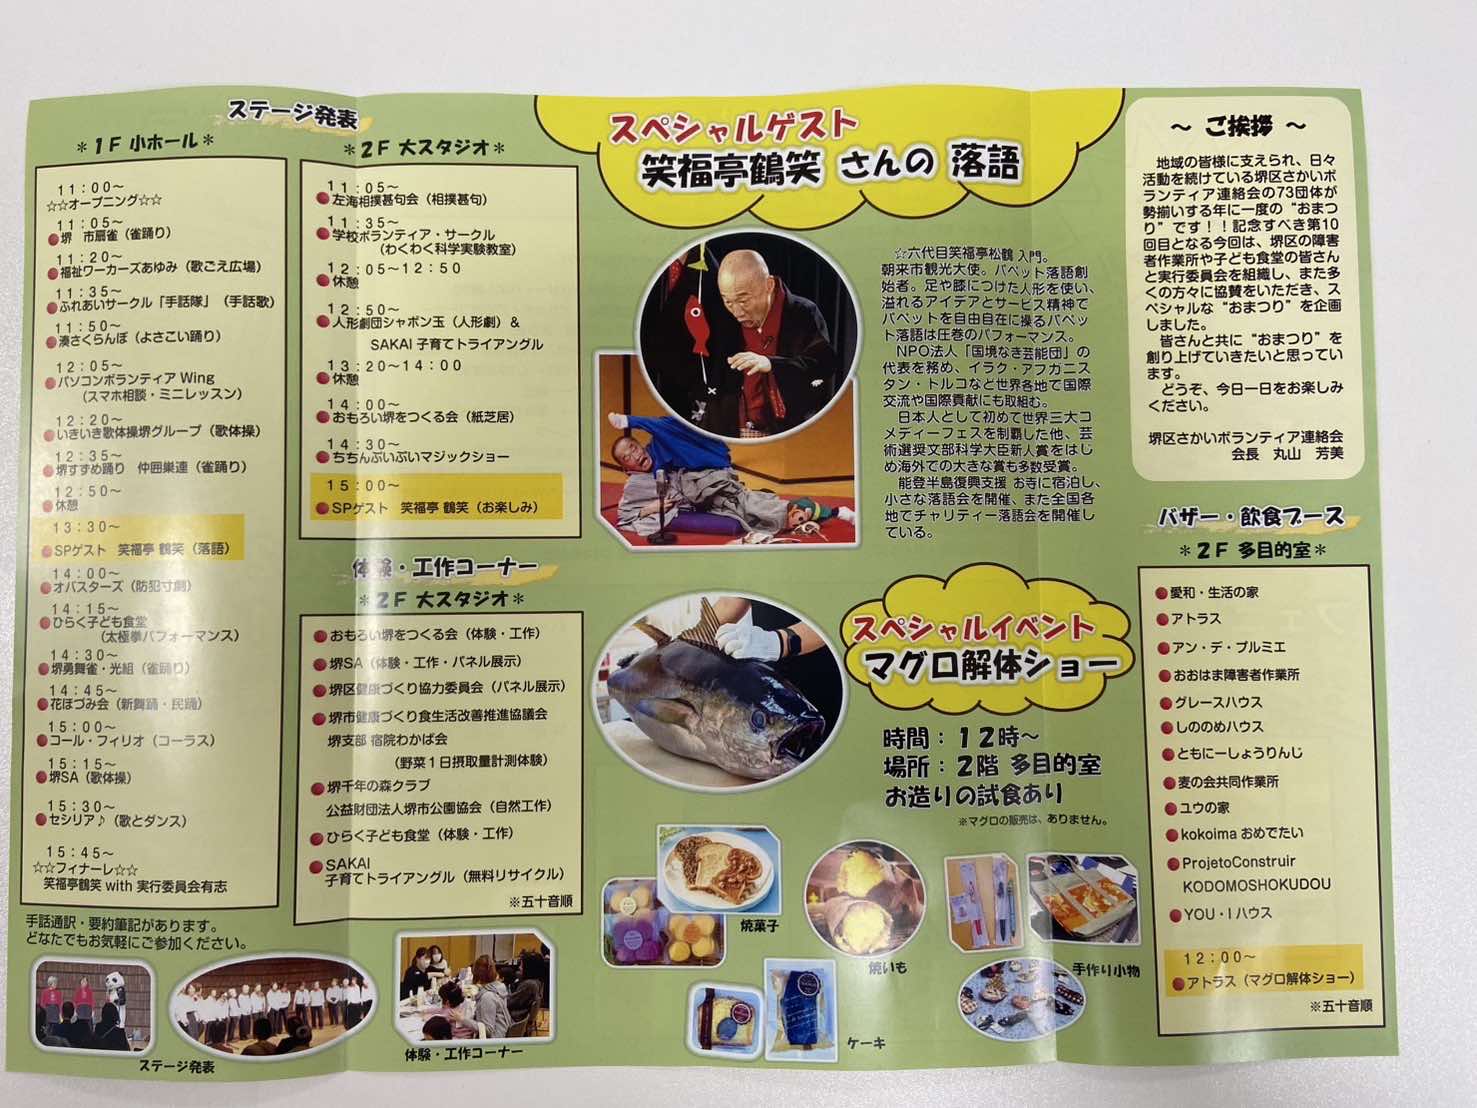 ステージ発表
＊1F 小ホール＊
11：00～
☆☆オープニング☆☆
11：05～
堺　市扇雀（雀踊り）
11：20～
福祉ワーカーズあゆみ（歌ごえ広場）
11：35～
ふれあいサークル「手話隊」（手話歌）
11：50～
湊さくらんぼ（よさこい踊り）
12：05～
パソコンボランティア Wing
（スマホ相談・ミニレッスン）
12：20～
いきいき歌体操堺グループ（歌体操）
12：35～
堺すずめ踊り　仲囲巣連（雀踊り）
12：50～
休憩
13：30～
SPゲスト　笑福亭 鶴笑（落語）
14：00～
オバスターズ（防犯寸劇）
14：15～
ひらく子ども食堂
（太極拳パフォーマンス）
14：30～
堺勇舞雀・光組（雀踊り）
14：45～
花ほづみ会（新舞踊・民踊）
15：00～
コール・フィリオ（コーラス）
15：15～
堺SA（歌体操）
15：30～
セシリア♪（歌とダンス）
15：45～
☆☆フィナーレ☆☆
笑福亭鶴笑 with 実行委員会有志
手話通訳・要約筆記があります。
どなたでもお気軽にご参加ください。
ステージ発表
＊2F 大スタジオ＊
11：05～
左海相撲甚句会（相撲甚句）
11：35～
学校ボランティア・サークル
（わくわく科学実験教室）
12：05～12：50
休憩
12：50～
人形劇団シャボン玉（人形劇）＆
SAKAI 子育てトライアングル
13：20～14：00
休憩
14：00～
おもろい堺をつくる会（紙芝居）
14：30～
ちちんぷいぷいマジックショー
15：00～
SPゲスト　笑福亭 鶴笑（お楽しみ）
体験・工作コーナー
＊2F 大スタジオ＊
おもろい堺をつくる会（体験・工作）
堺SA（体験・工作・パネル展示）
堺区健康づくり協力委員会（パネル展示）
堺市健康づくり食生活改善推進協議会
堺支部 宿院わかば会
（野菜1日摂取量計測体験）
堺千年の森クラブ
公益財団法人堺市公園協会（自然工作）
ひらく子ども食堂（体験・工作）
SAKAI
子育てトライアングル（無料リサイクル）
※五十音順
体験・工作コーナー
スペシャルゲスト
笑福亭鶴笑 さんの 落語
☆六代目笑福亭松鶴 入門。
朝来市観光大使。パペット落語創
始者。足や膝につけた人形を使い、
溢れるアイデアとサービス精神で
パペットを自由自在に操るパペッ
ト落語は圧巻のパフォーマンス。
NPO法人「国境なき芸能団」の
代表を務め、イラク・アフガニス
タン・トルコなど世界各地で国際
交流や国際貢献にも取組む。
日本人として初めて世界三大コ
メディーフェスを制覇した他、芸
術選奨文部科学大臣新人賞をはじ
め海外での大きな賞も多数受賞。
能登半島復興支援 お寺に宿泊し、
小さな落語会を開催、また全国各
地でチャリティー落語会を開催し
ている。
スペシャルイベント
マグロ解体ショー
時間：12時～
場所：2階 多目的室
お造りの試食あり
※マグロの販売は、ありません。
焼菓子
焼いも
手作り小物
ケーキ
～ ご挨拶 ～
地域の皆様に支えられ、日々
活動を続けている堺区さかいボ
ランティア連絡会の73団体が
勢揃いする年に一度の“おまつ
り”です！！記念すべき第10
回目となる今回は、堺区の障害
者作業所や子ども食堂の皆さん
と実行委員会を組織し、また多
くの方々に協賛をいただき、ス
ペシャルな“おまつり”を企画
しました。
皆さんと共に“おまつり”を
創り上げていきたいと思ってい
ます。
どうぞ、今日一日をお楽しみ
ください。
堺区さかいボランティア連絡会
会長　丸山　芳美
バザー・飲食ブース
＊2F 多目的室＊
愛和・生活の家
アトラス
アン・デ・プルミエ
おおはま障害者作業所
グレースハウス
しののめハウス
ともにーしょうりんじ
麦の会共同作業所
ユウの家
kokoima おめでたい
ProjetoConstruir
KODOMOSHOKUDOU
YOU・I ハウス
12：00～
アトラス（マグロ解体ショー）
※五十音順